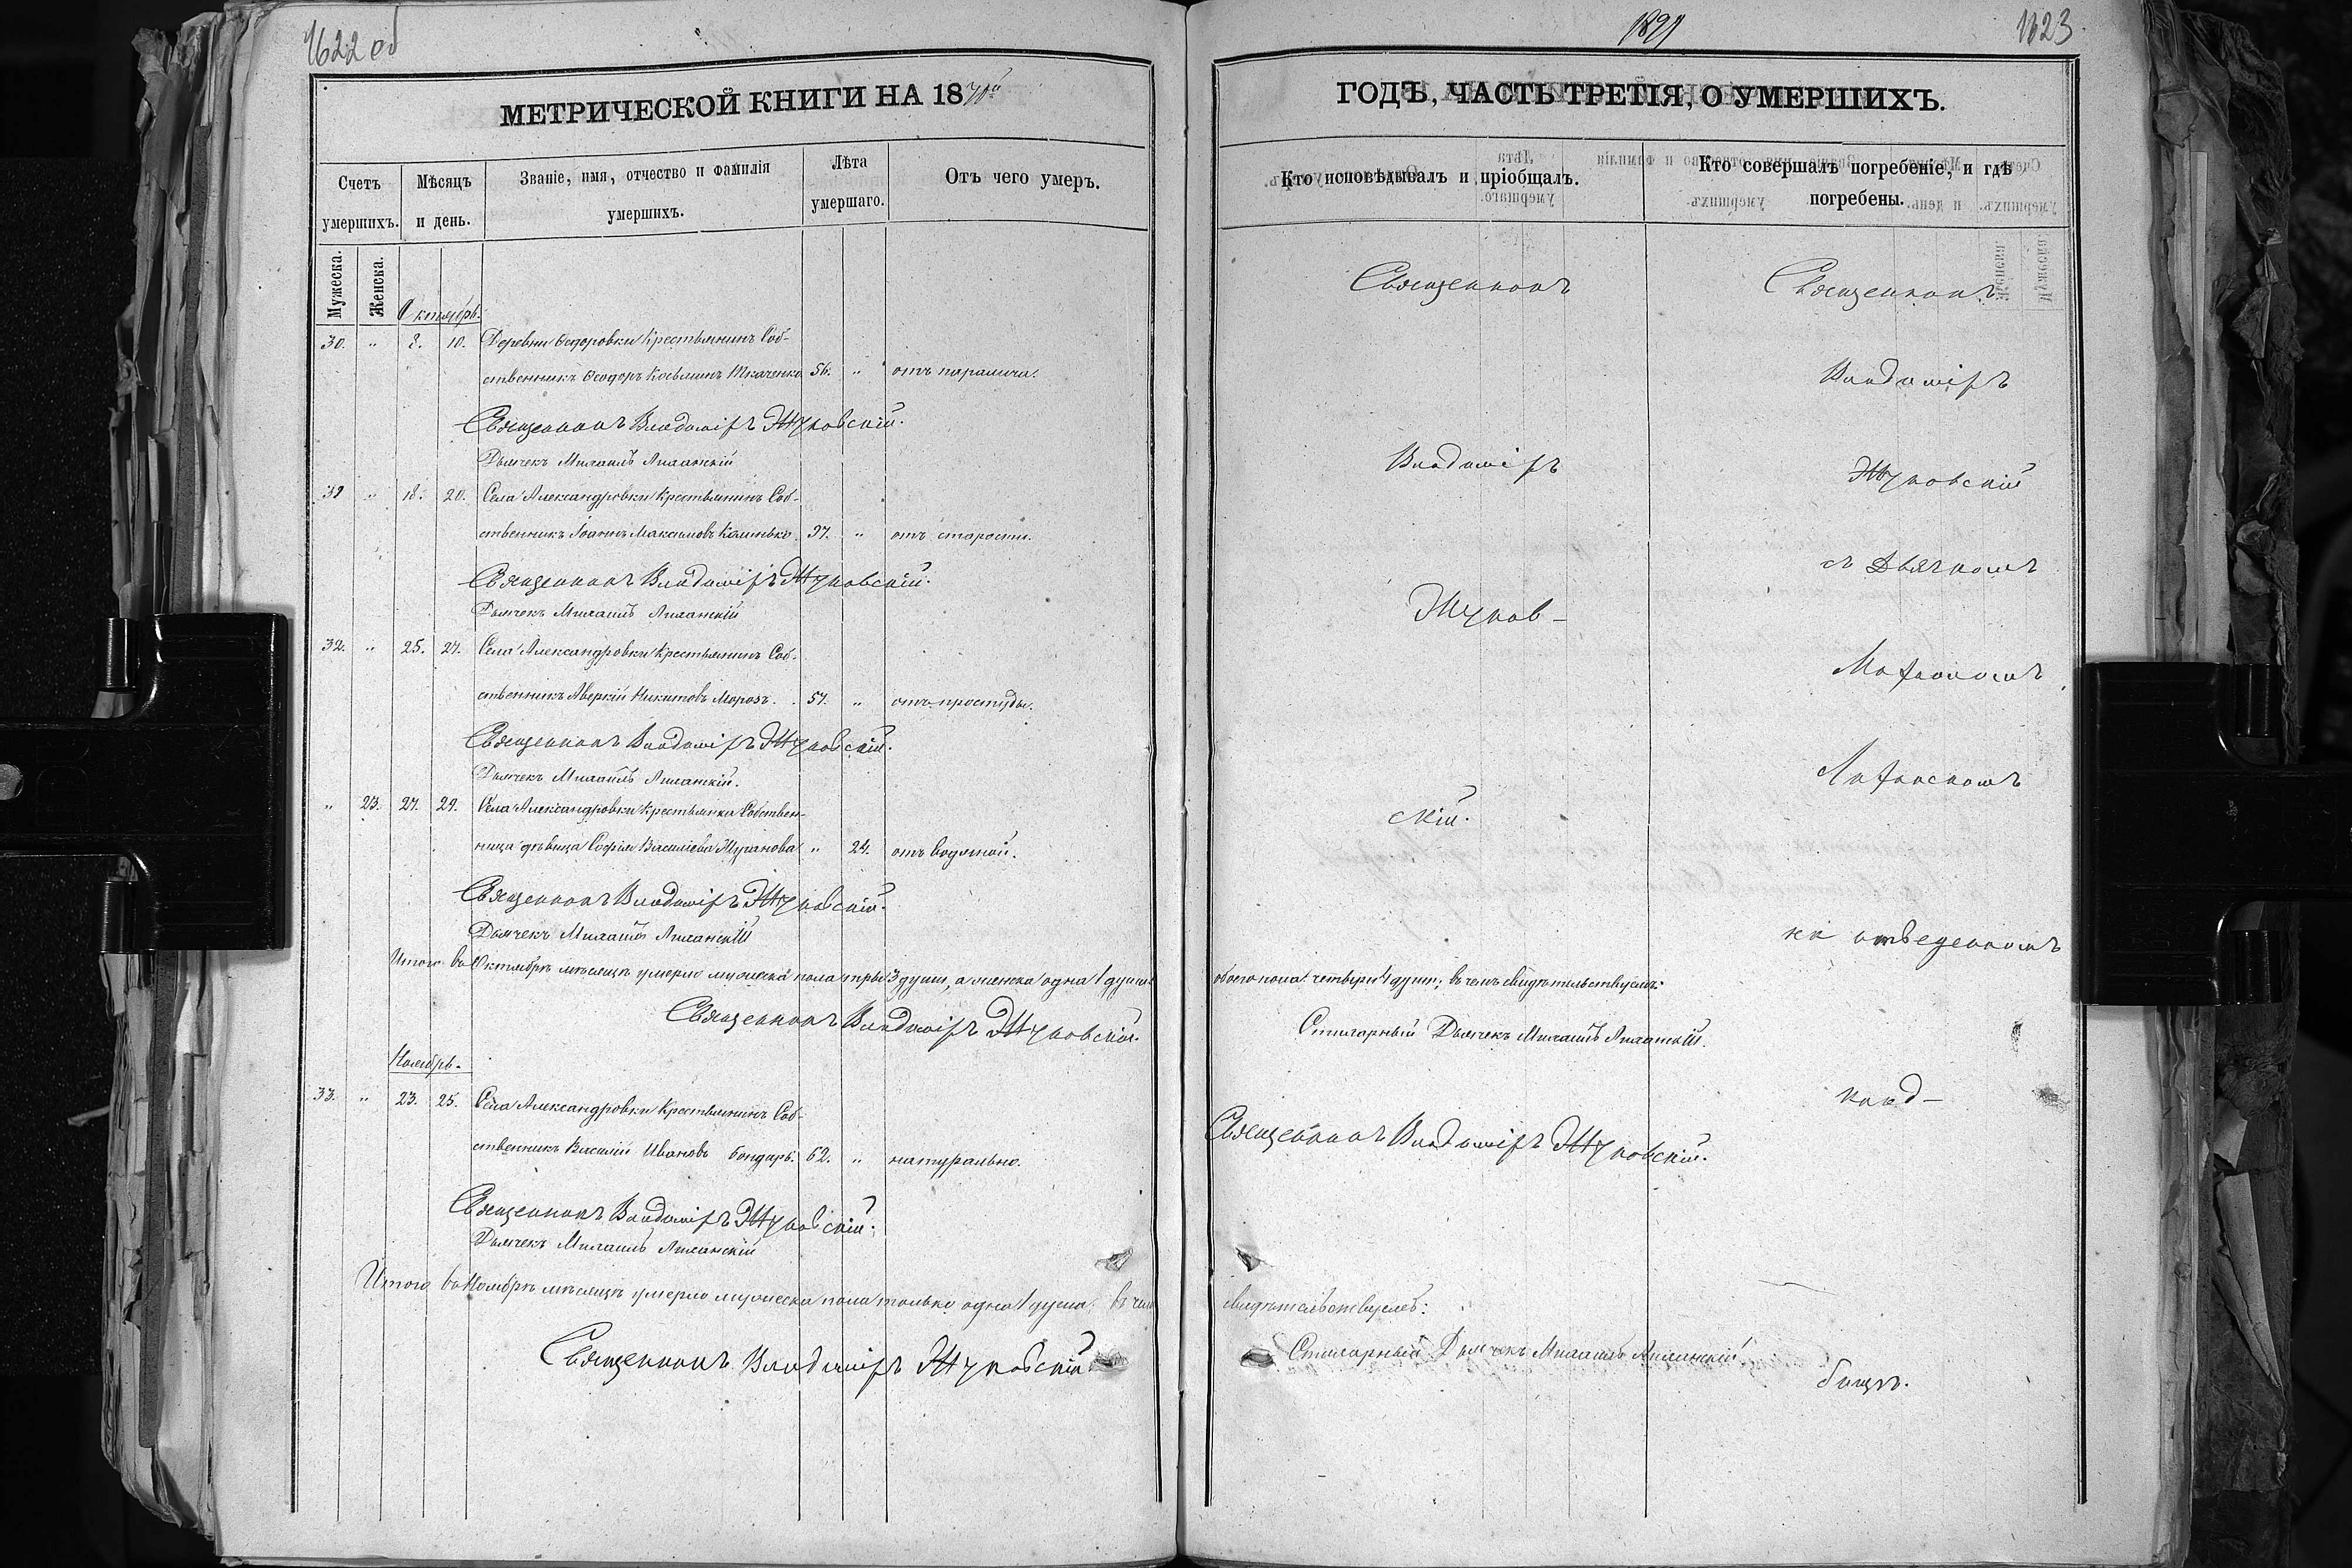 1622 об
1891
1623
МЕТРИЧЕСКОЙ КНИГИ НА 1870й
ГОДЪ, ЧАСТЬ ТРЕТІЯ, О УМЕРШИХЪ.
Счетъ умершихъ.
Мѣсяцъ и день.
Званіе, имя, отчество и фамилія умершихъ.
Лѣта умершаго.
Отъ чего умеръ.
Кто исповѣдывалъ и пріобщалъ.
Кто совершалъ погребеніе, и гдѣ погребены.
Мужеска.
Женска.
Октябрь.
30. " 8. 10. Деревни Ѳедоровки Крестьянинъ Соб-
ственникъ Ѳеодоръ Ткаченко 56. " отъ паралича.
Священникъ Владиміръ Жуковскій.
Дьячекъ Михаилъ
31 " 18. 20. Села Александровки Крестьянинъ Соб-
ственникъ Іоаннъ Максимовъ 97. " отъ старости.
Священникъ Владиміръ Жуковскій.
Дьячекъ Михаилъ
32. " 25. 27. Села Александровки Крестьянинъ Соб-
ственникъ Аверкій Никитовъ Морозъ. 57. " отъ простуды.
Священникъ Владиміръ Жуковскій.
Дьячекъ Михаилъ
" 23. 27. 29. Села Александровки Крестьянка Собствен-
ница дѣвица Софія Василіева " 24. отъ водяной.
Священникъ Владиміръ Жуковскій.
Дьячекъ Михаилъ
Итого въ Октябрѣ мѣсяцѣ умерло мужеска пола три 3 души, а женска одна 1 душа
обоего пола четыри 4 души; въ чемъ свидѣтельствуемъ:
Священникъ Владиміръ Жуковскій.
Дьячекъ Михаилъ
Ноябрь.
33. " 23. 25. Села Александровки Крестьянинъ Соб-
ственникъ Василій Ивановъ Бондарь. 62. " натурально.
Священникъ Владиміръ Жуковскій.
Дьячекъ Михаилъ
Итого въ Ноябрѣ мѣсяцѣ умерло мужеска пола только одна 1 душа; въ чем
свидѣтельствуемъ:
Священникъ Владиміръ Жуковскій
Дьячекъ Михаилъ
Священникъ
Владиміръ
Жуков-
скій.
Священникъ Владиміръ Жуковскій.
Священникъ
Владиміръ
Жуковскій
съ Дьячкомъ
Михаиломъ
на отведенномъ
клад-
бищѣ.